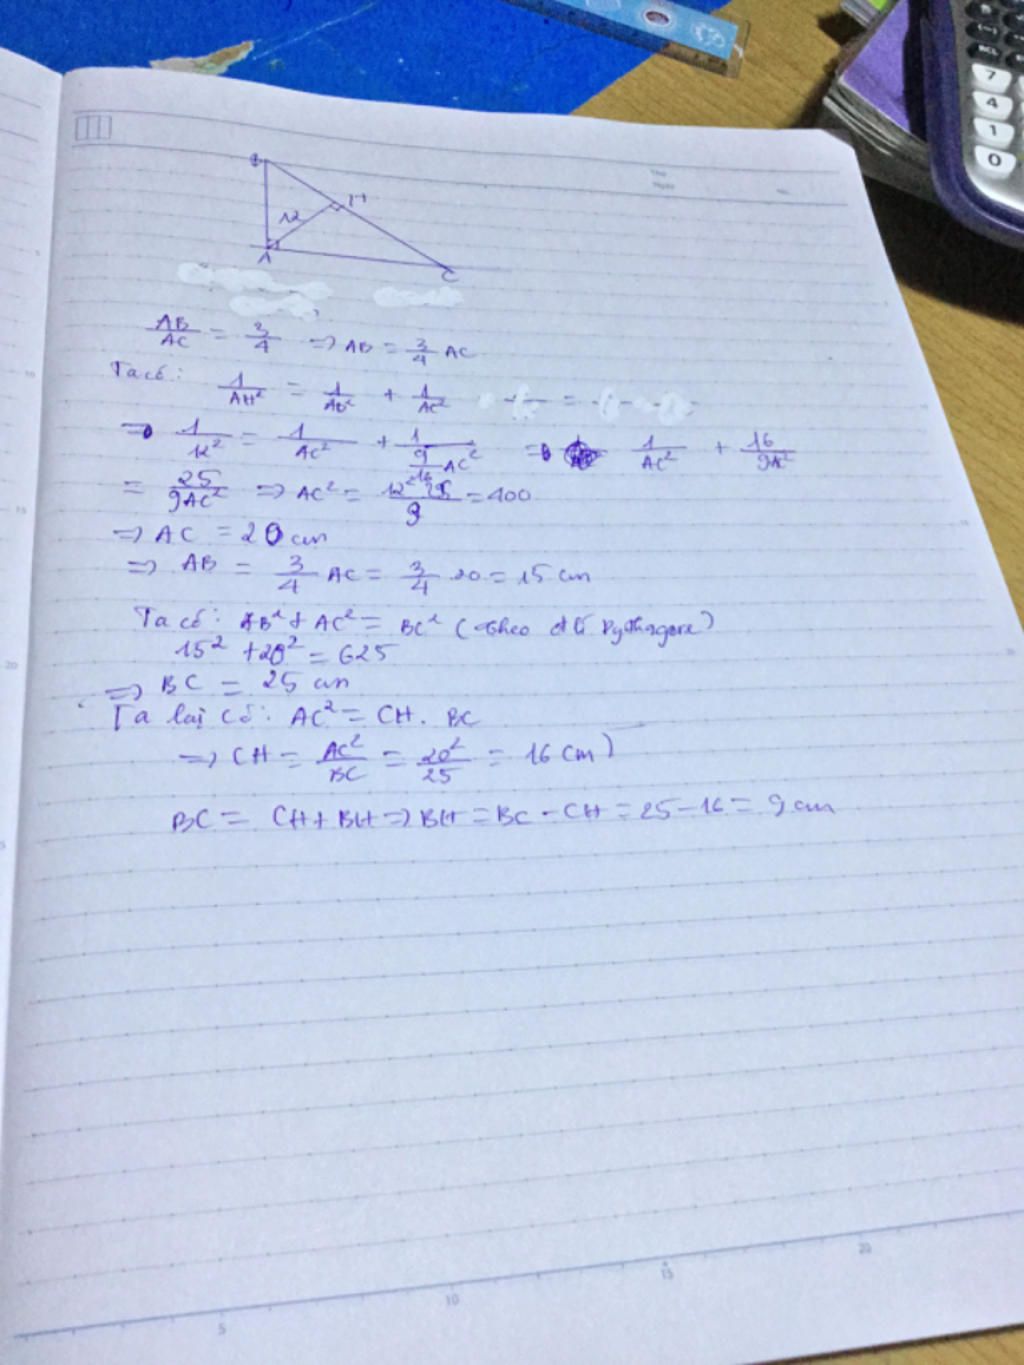 B
12
H
A
C
AB/AC = 3/4 => AB = 3/4 AC
Ta có: 1/AH² = 1/AB² + 1/AC²
=> 1/12² = 1/AC² + 1/(9/16 AC²) => 1/AC² + 16/9AC²
= 25/9AC² => AC² = 12² 25/9 = 400
=> AC = 20 cm
=> AB = 3/4 AC = 3/4 . 20 = 15 cm
Ta có: AB² + AC² = BC² (theo đlí Pythagore)
15² + 20² = 625
=> BC = 25 cm
Ta lại có: AC² = CH . BC
=> CH = AC²/BC = 20²/25 = 16 cm)
BC = CH + BH => BH = BC - CH = 25 - 16 = 9 cm
5
10
15
20
7
4
1
0